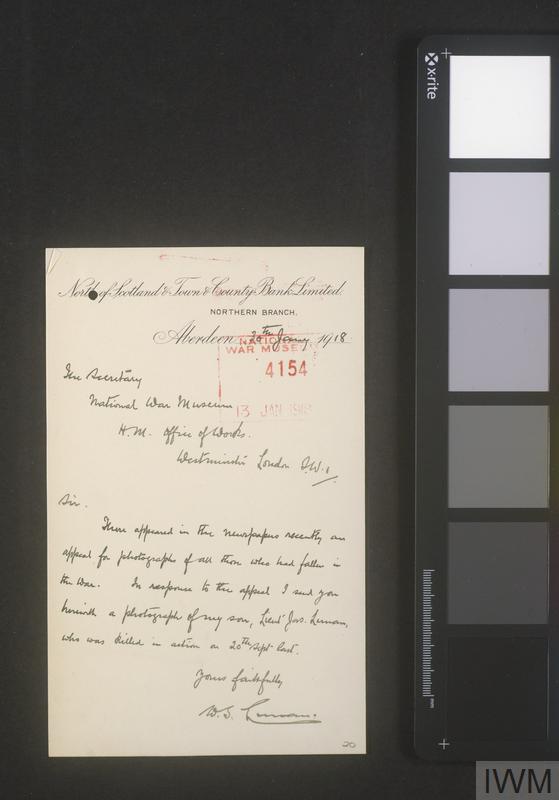 North of Scotland & Town & County Bank Limited.
NORTHERN BRANCH.
Aberdeen 1918
NATIONAL
WAR MUSEUM
4154
13 JAN 1918
The Secretary
National War Museum
H.M. Office of Works.
Westminster London S.W.1
Sir.
There appeared in the newspapers recently an
appeal for photographs of all those who had fallen in
the War. In response to the appeal I send you
herewith a photograph of my son, Lieut Jas.
who was killed in action on 20th Sept last.
Yours faithfully
W.S.
20
x-rite
mm
IWM